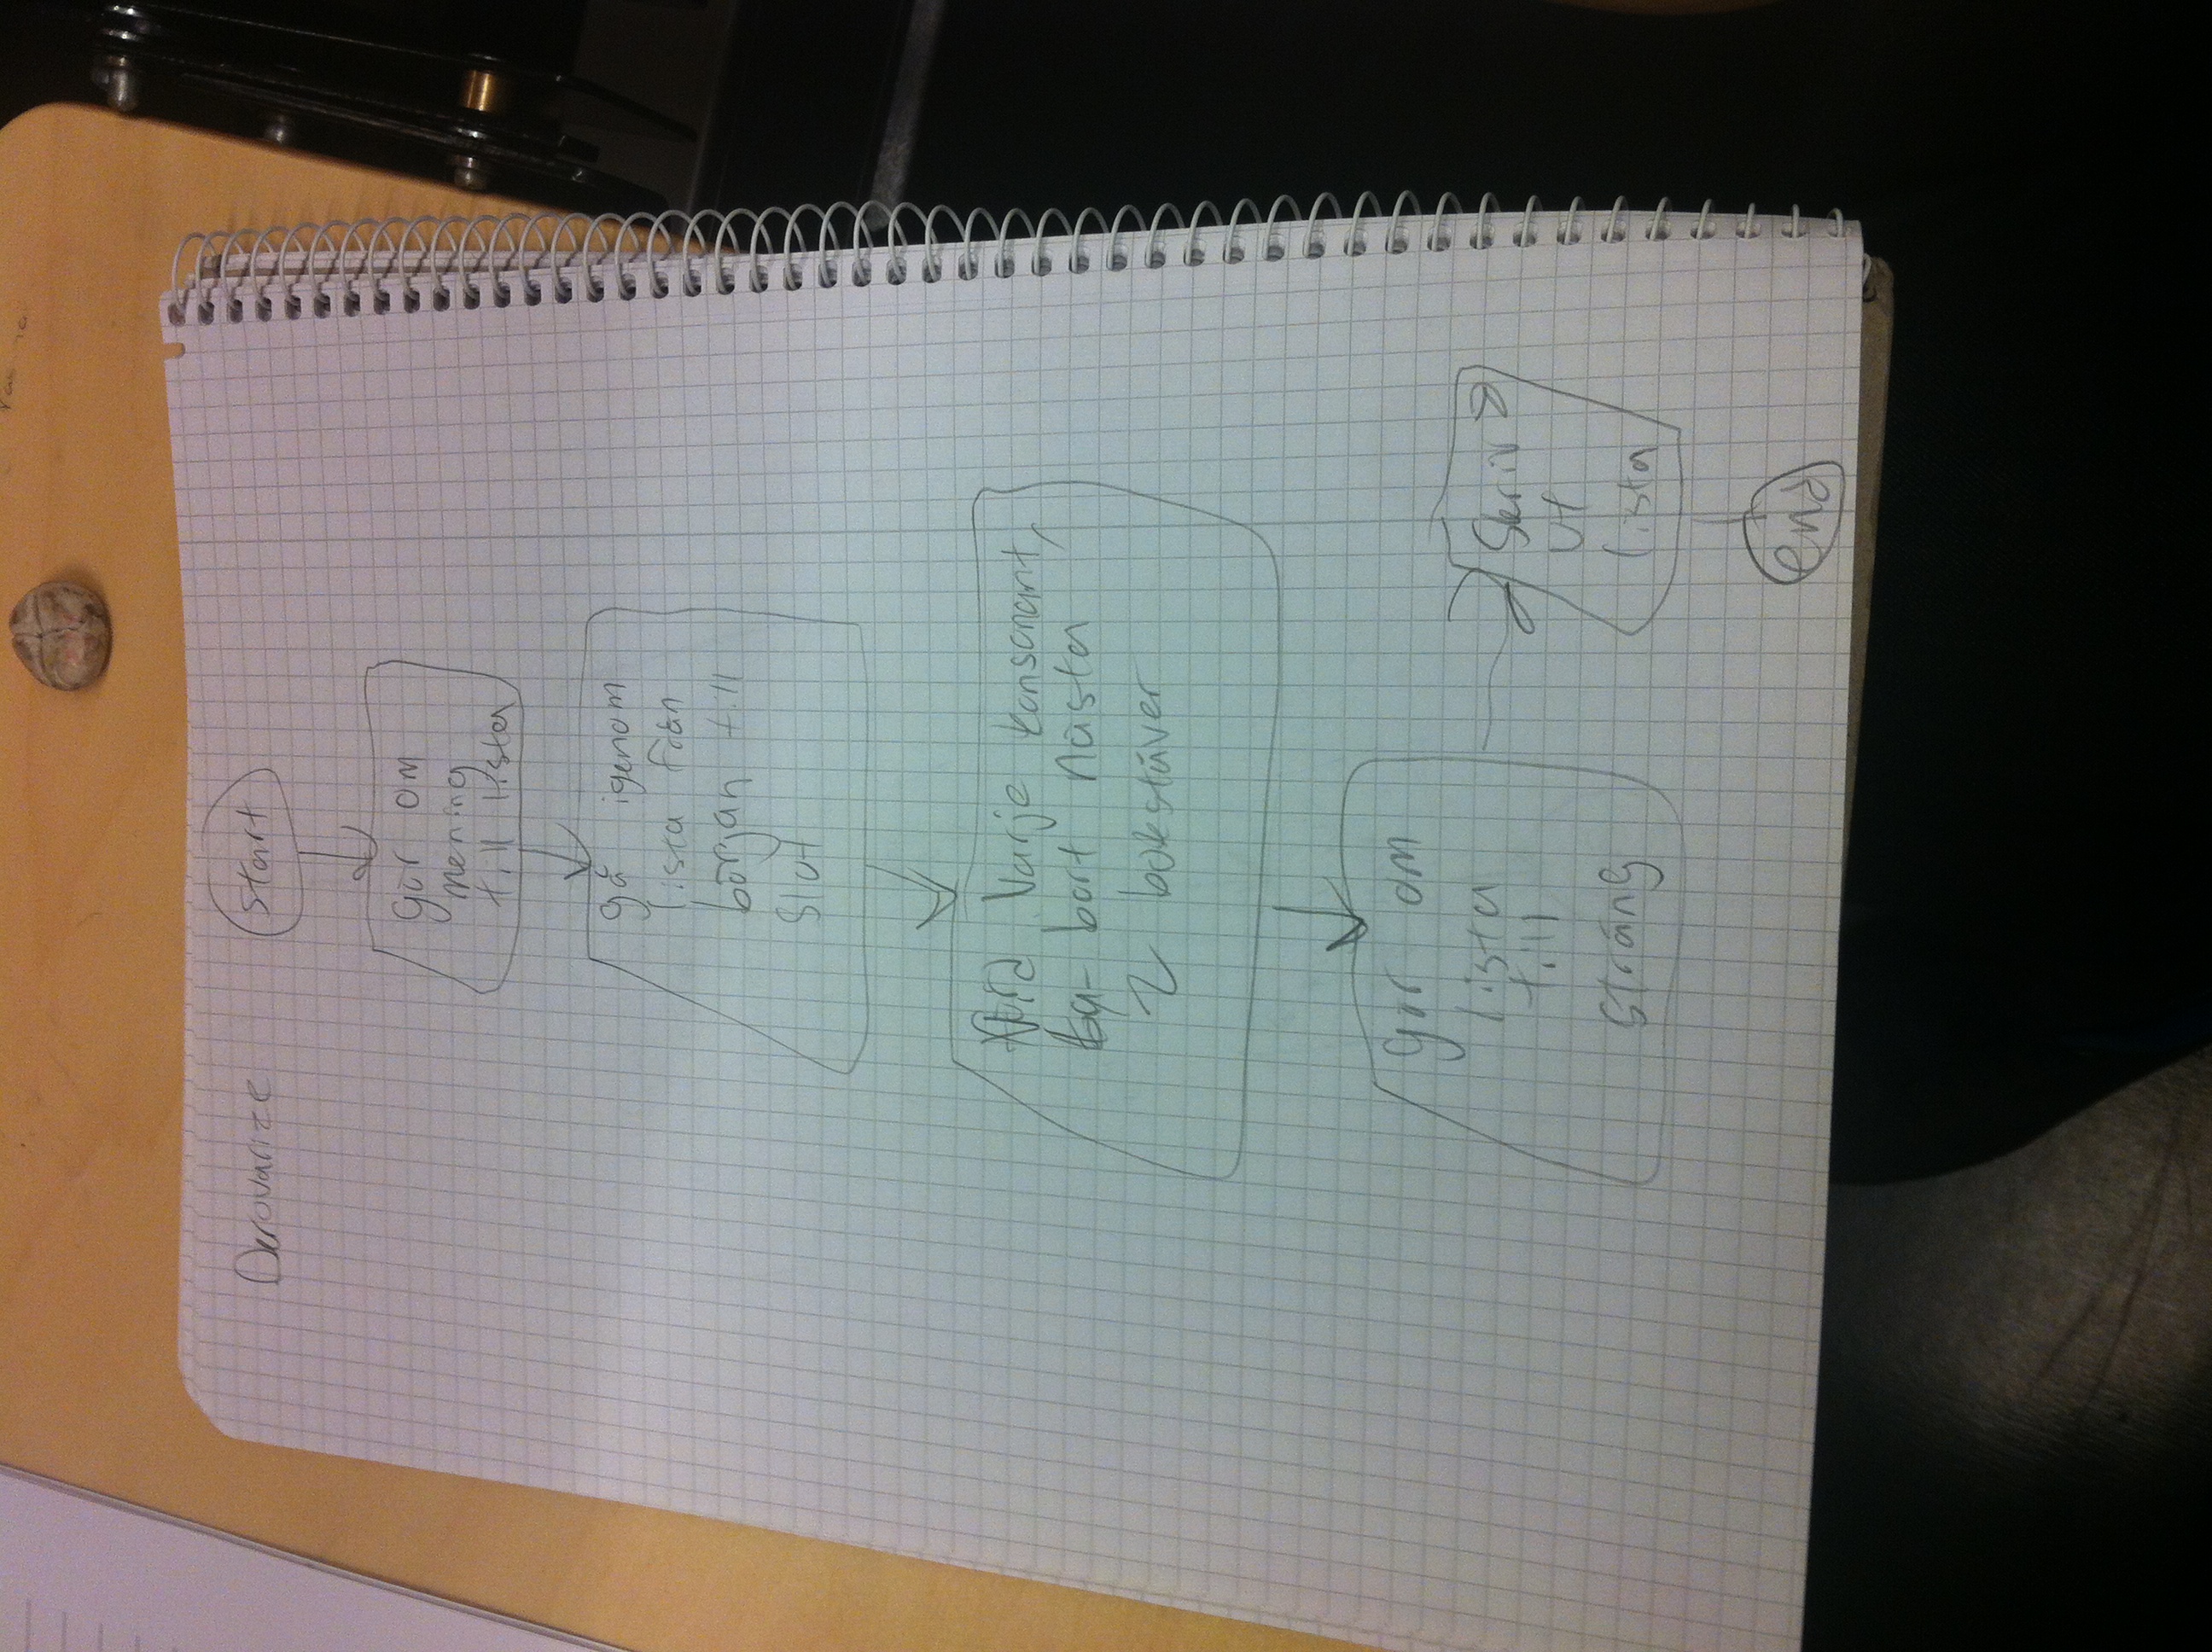 Derovarize
Start
gör om
mening
till lista
gå igenom
lista från
början till
slut
Vid varje konsonant,
ta bort nästa
2 bokstäver
gör om
lista
till
sträng
Skriv
ut
lista
end